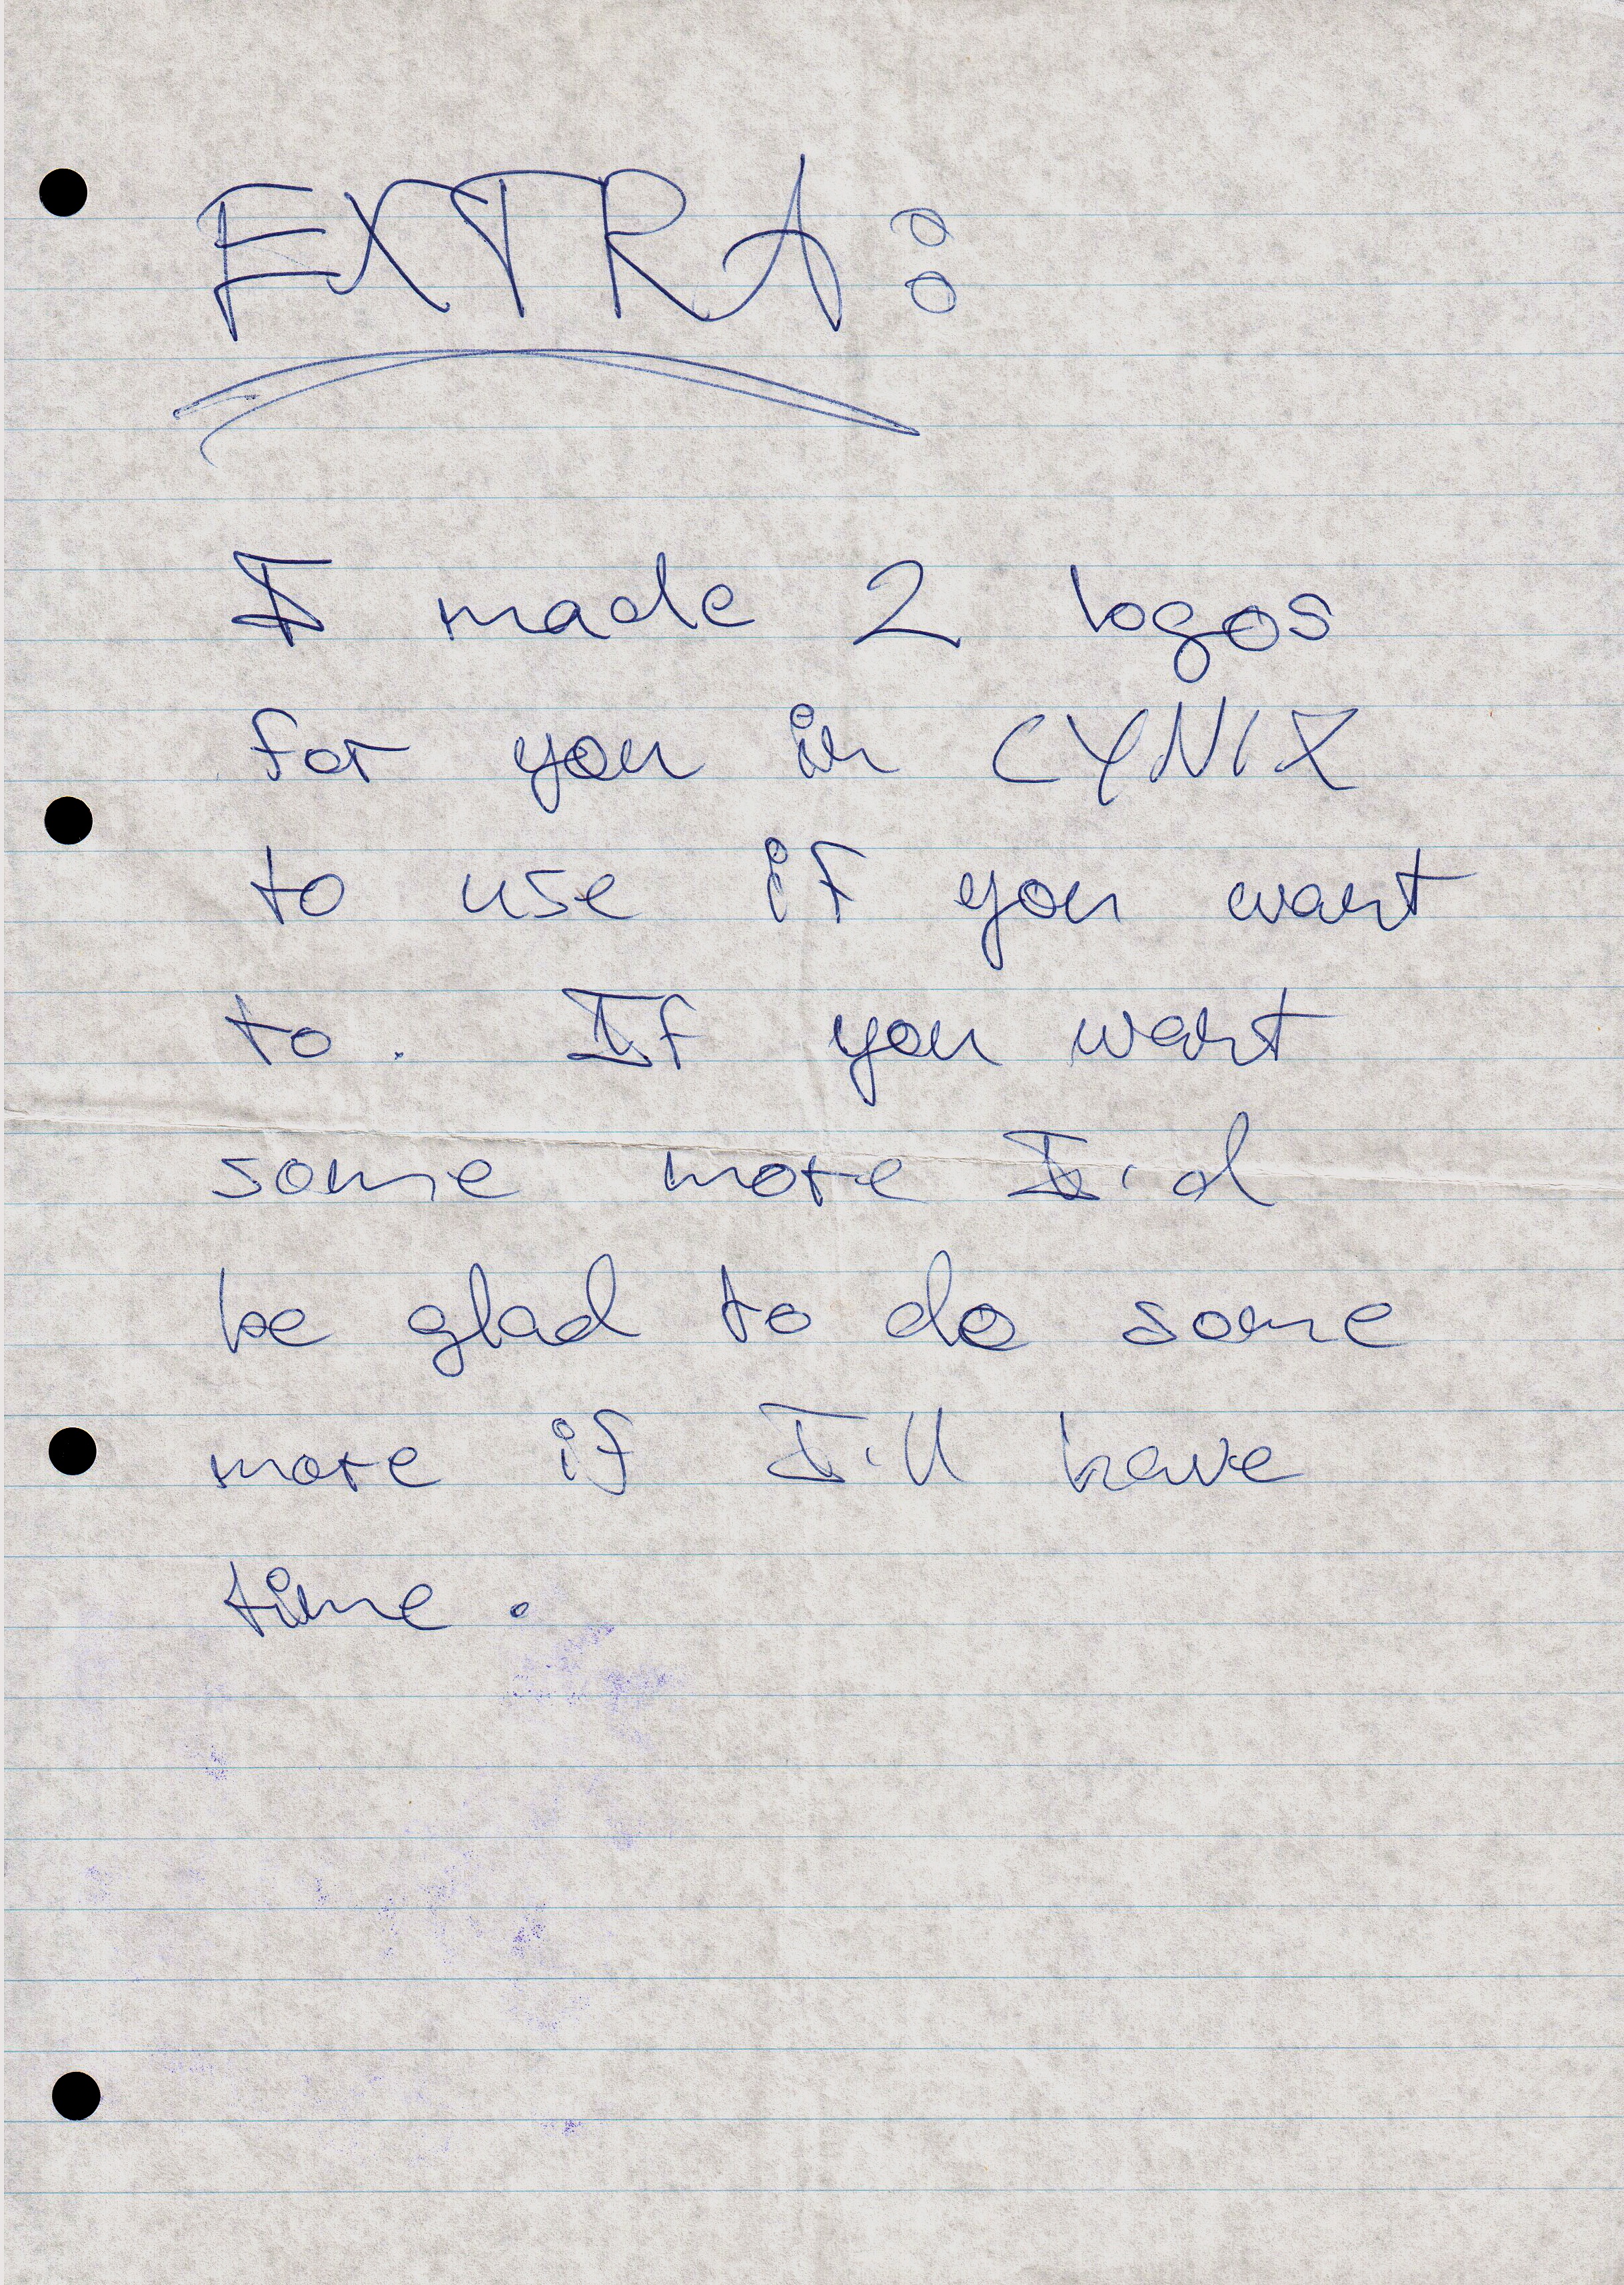 EXTRA:
I made 2 logos
for you in CYNIX
to use if you want
to. If you want
some more I'd
be glad to do some
more if I'll have
time.